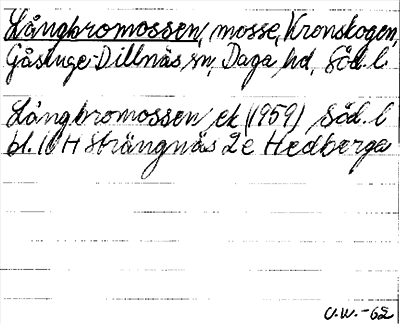 Långbromossen, mosse, Kronskogen,
Gåsinge-Dillnäs sn, Daga hd, Söd. l
Långbromossen ek (1959) Söd. l
bl. 10 H Strängnäs 2 e Hedberga
U.W. -62